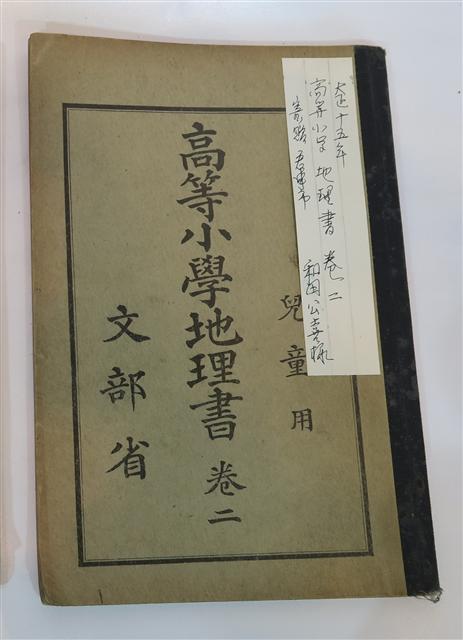 大正十五年
高等小学 地理書 巻二
和田公喜様
兒童用
高等小學地理書 卷二
文部省